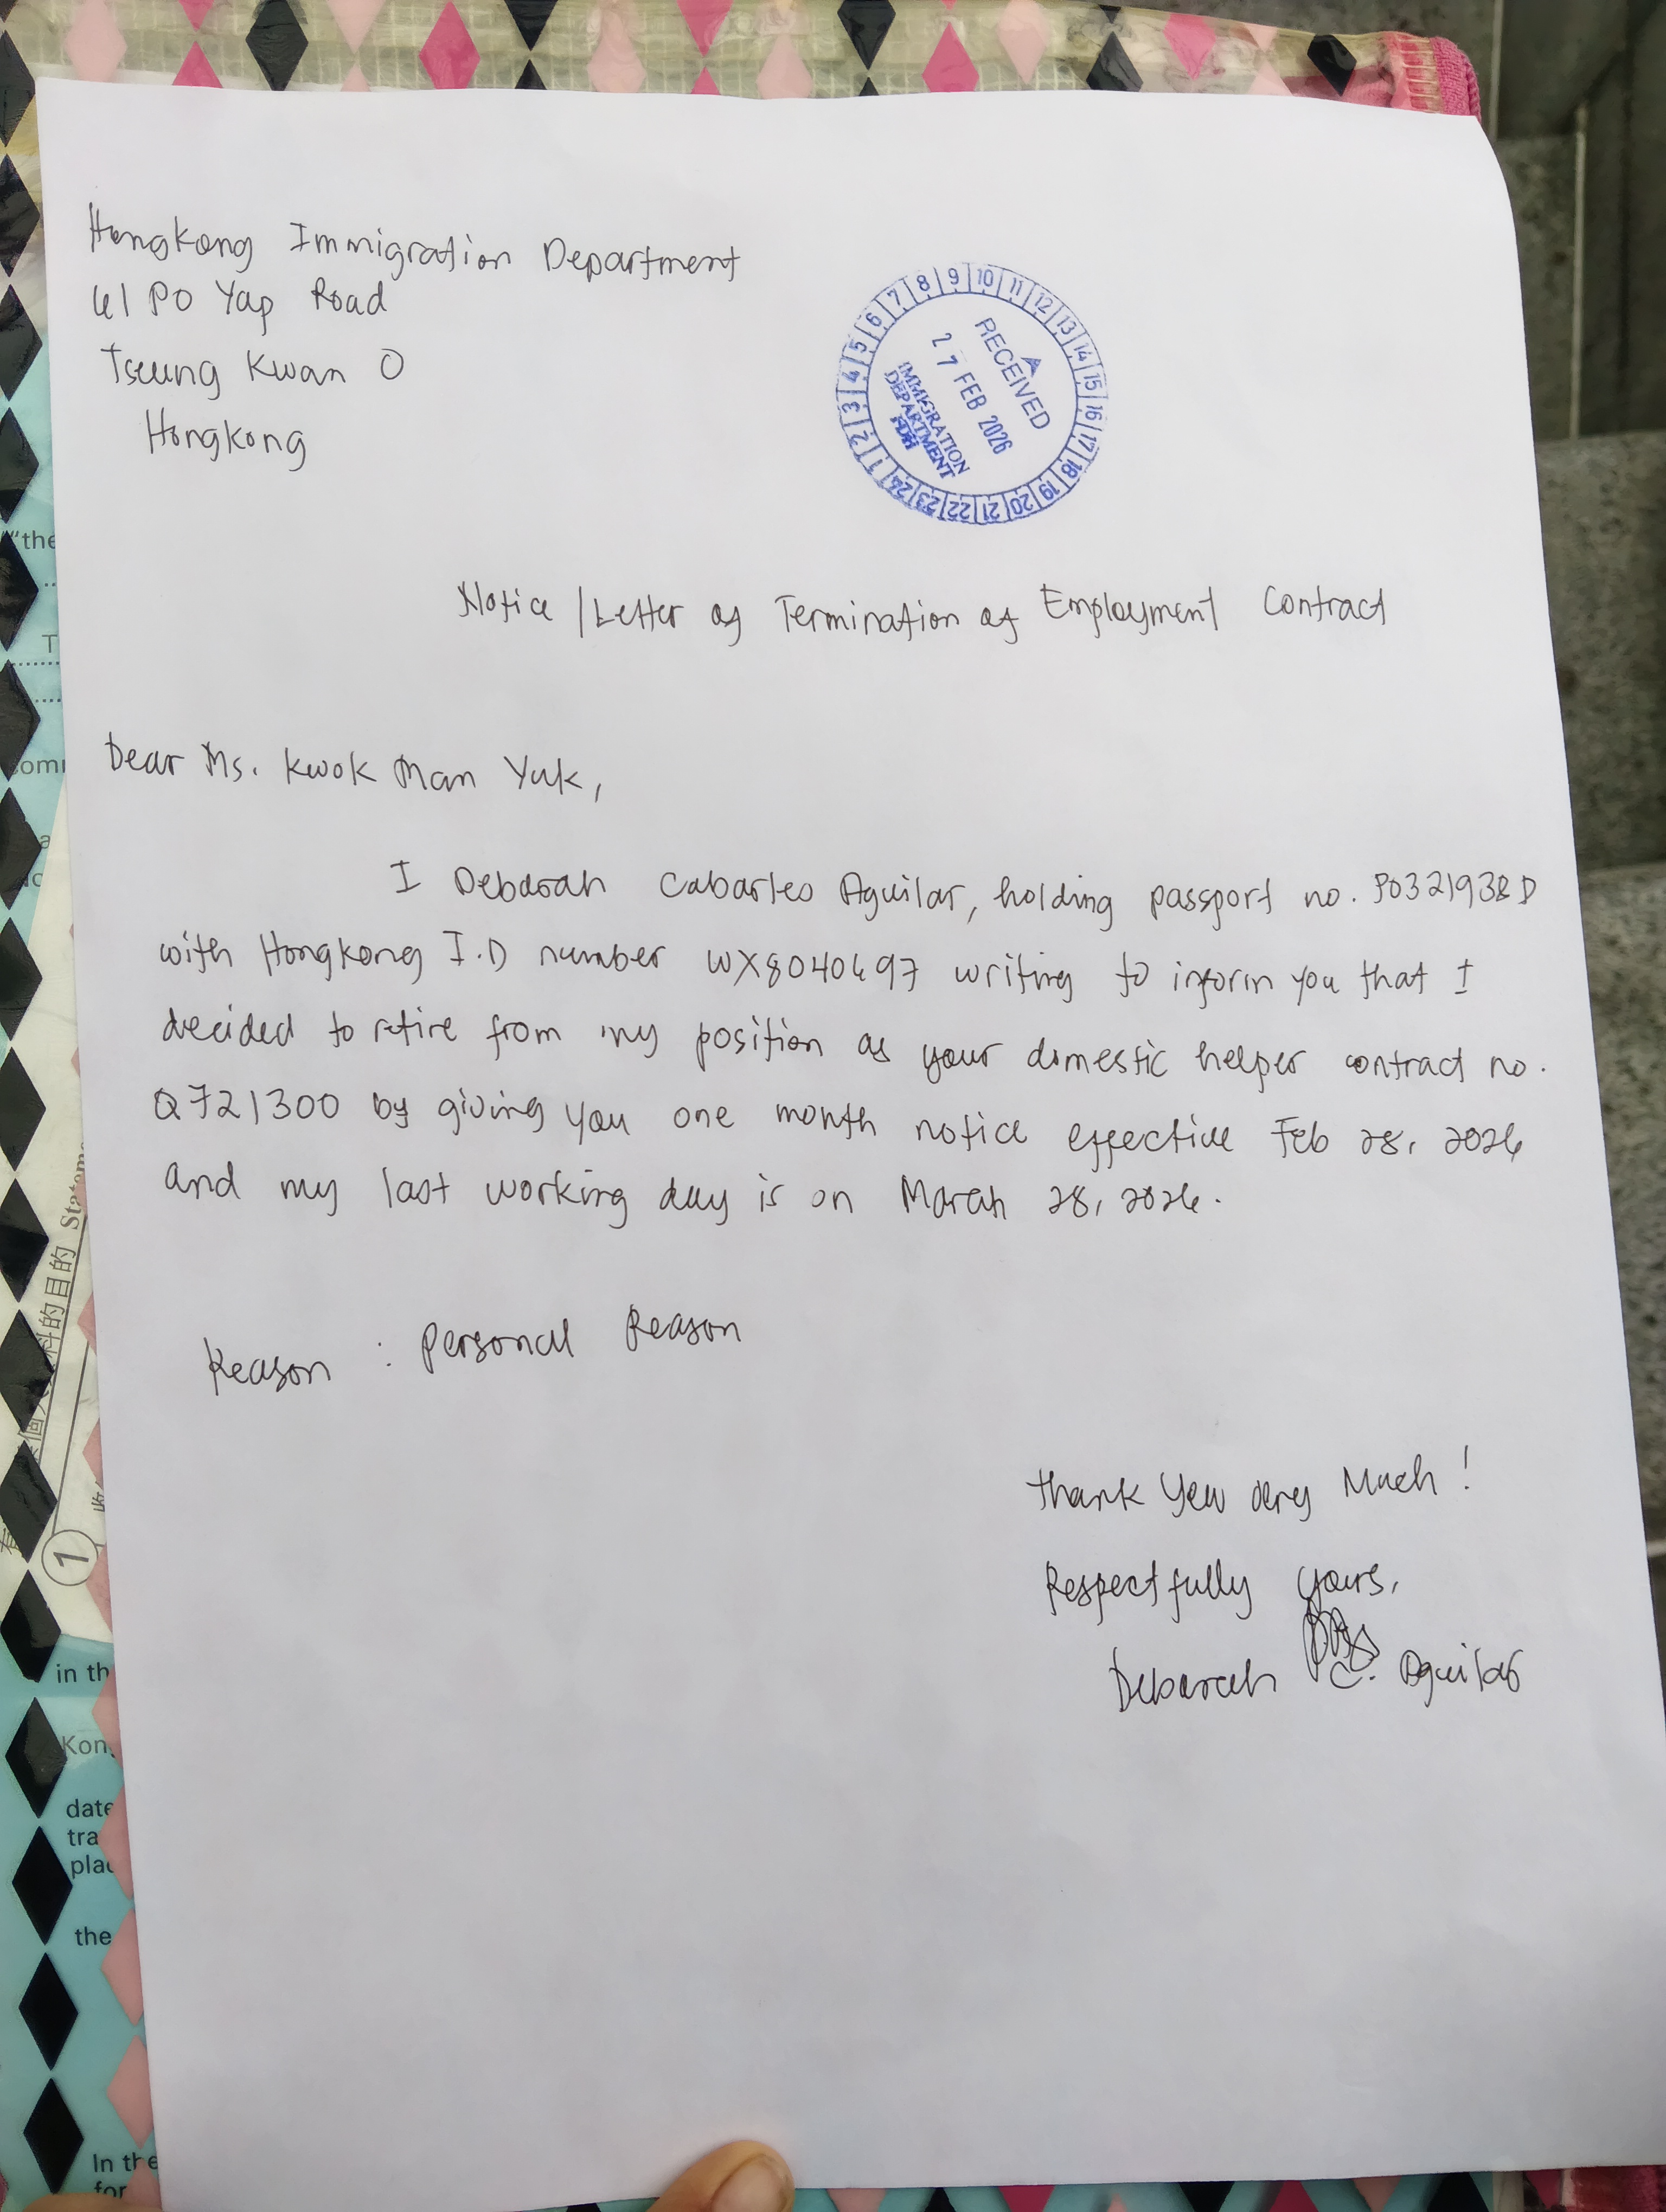 Hongkong Immigration Department
61 Po Yap Road
Tseung Kwan O
Hongkong
1 2 3 4 5 6 7 8 9 10 11 12 13 14 15 16 17 18 19 20 21 22 23 24
RECEIVED
27 FEB 2026
IMMIGRATION
DEPARTMENT
FDH
Notice / Letter of Termination of Employment Contract
Dear Ms. Kwok Man Yuk,
I Deborah Cabarles Aguilar, holding passport no. P0321938D
with Hongkong I.D number WX8040697 writing to inform you that I
decided to retire from my position as your domestic helper contract no.
Q721300 by giving you one month notice effective Feb 28, 2026
and my last working day is on March 28, 2026.
Reason : Personal Reason
Thank You Very Much!
Respectfully Yours,
Deborah C. Aguilar
"the
T
a
的目的
1
in th
Kon
date
tra
pla
the
In the
for